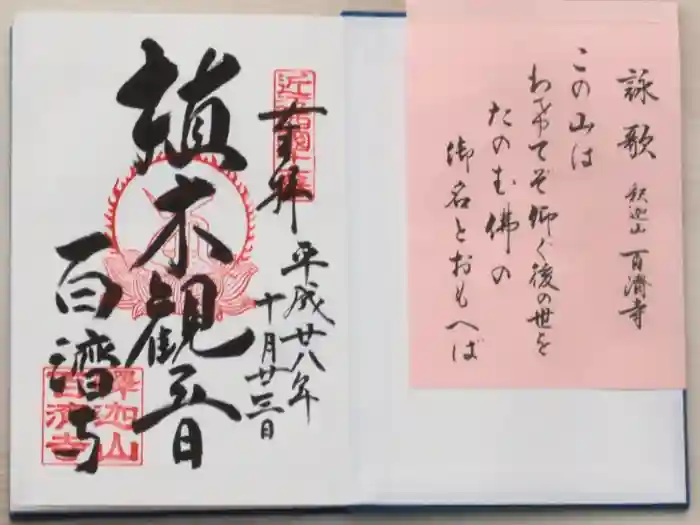 詠歌 釈迦山 百濟寺
この山は
わけてぞ仰ぐ後の世を
たのむ佛の
御名とおもへば
奉拝
平成廿八年
十月廿三日
植木観音
百濟寺
釋迦山
百済寺